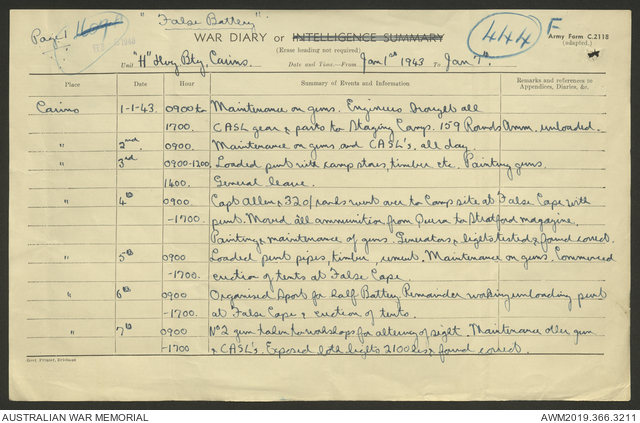 Page 1 "False Battery".
444 F
WAR DIARY or INTELLIGENCE SUMMARY
Army Form C.2118
(adapted.)
(Erase heading not required)
Unit "H" Hvy Bty, Cairns. Date and Time—From Jan 1st 1943 To Jan 7th.
Place Date Hour Summary of Events and Information Remarks and references to Appendices, Diaries, &c.
Cairns 1-1-43. 0900 to Maintenance on guns. Engineers brought all
1700. CASL gear & parts to Staging Camp. 159 Rounds Amm. unloaded.
" 2nd 0900. Maintenance on guns and CASL's, all day.
" 3rd 0900-1200. Loaded punt with camp stores, timber etc. Painting guns.
1400. General leave.
" 4th 0900 Capt Allen & 32 O/ranks went over to Camp site at False Cape with
-1700. punt. Moved all ammunition from Quera to Stratford magazine.
Painting & maintenance of guns. Generators & lights tested & found correct.
" 5th 0900 Loaded punt pipes, timber, cement. Maintenance on guns. Commenced
-1700. erection of tents at False Cape.
" 6th 0900 Organised Sport for half Battery Remainder working unloading punt
-1700. at False Cape & erection of tents.
" 7th 0900 No 2 gun taken to workshops for altering of sight. Maintenance other gun
-1700 & CASL's. Exposed both lights 2100 hrs & found correct.
AUSTRALIAN WAR MEMORIAL
AWM2019.366.3211